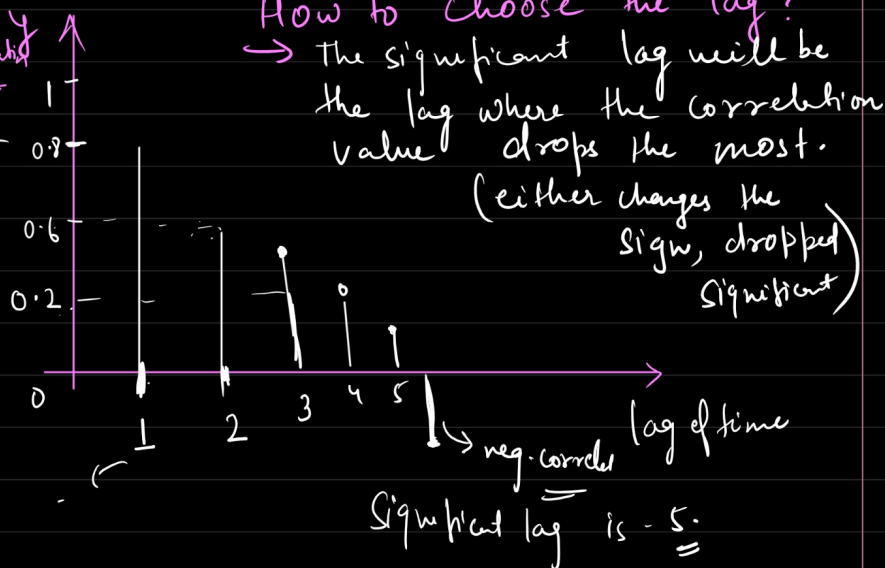 How to choose the lag?
y
→ The significant lag will be
the lag where the correlation
value drops the most.
(either changes the
sign, dropped
significant)
1
0.8
0.6
0.2
0
1 2 3 4 5
lag of time
neg. correl
Significant lag is - 5.